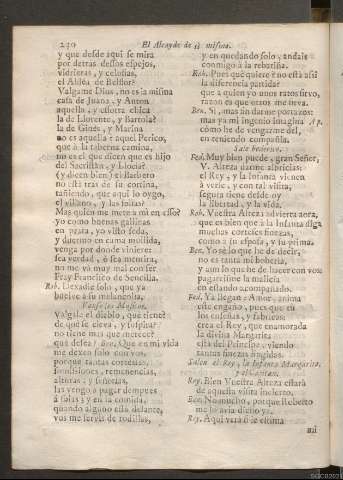 230 El Alcayde de si mismo.
y que desde aqui se mira
por detras dessos espejos,
vidrieras, y celosias,
el Aldèa de Belflor?
Valgame Dios, no es la misma
casa de Juana, y Anton
aquella, y essotra chica
la de Llorente, y Bartola?
la de Ginès, y Marina
no es aquella? aquel Perico,
que à la taberna camina,
no es el que dicen que es hijo
del Sacristan, y Llocia?
(y dicen bien) el Barbero
no està tras de su cortina,
tañendo, que aqui lo oygo,
el villano, y las folias?
Mas quien me mete à mi en esso?
yo como buenas gallinas
en prata, yo visto seda,
y duermo en cama mollida,
venga por donde viniere:
sea verdad, ò sea mentira,
no me và muy mal con ser
Fray Francisco de Sencilia.
Rob. Dexadle solo, que ya
buelve à su melancolia.
Vanse los Musicos.
Valgate el diablo, que tienes?
de què se eleva, y suspira?
no tiene mas que merece?
què desea? Ben. Que en mi vida
me dexen solo con vos,
porque tantas cortesias,
sumissiones, remenencias,
alteras, y señorias,
las vengo à pagar despues
à solas; y en la comida,
quando alguno està delante,
vos me servis de rodillas,
y en quedando solo, andais
conmigo à la rebatiña.
Rob. Pues què quiere? no està assi
la diferencia partida?
que à quien yo unos ratos sirvo,
razon es que otros me sirva.
Ben. Si, mas sin darme porrazos:
mas ya mi ingenio imagina Ap.
còmo he de vengarme del,
en teniendo compañia.
Sale Federico.
Fed. Muy bien puede, gran Señor,
V. Alteza darme albricias:
el Rey, y la Infanta vienen
à verle, y con tal visita,
segura tiene desde oy
la libertad, y la vida.
Rob. Vuestra Alteza advierta aora,
que es bien que à la Infanta diga
muchas corteses finezas,
como à su esposa, y su prima.
Ben. Yo sè lo que he de decir,
no es tanta mi boberia,
y aun lo que he de hacer con vos:
pagareisme la malicia
en estando acompañado.
Fed. Ya llegan: Amor, anima
este engaño, pues que tù
los enseñas, y fabricas:
crea el Rey, que enamorada
la divina Margarita
està del Principe, viendo
tantas finezas fingidas.
Salen el Rey, la Infanta Margarita,
y
Rey. Bien Vuestra Alteza estarà
de aquesta visita incierto.
Ben. No mucho, porque Roberto
me lo avia dicho ya.
Rey. Aqui verà si le estima
mi